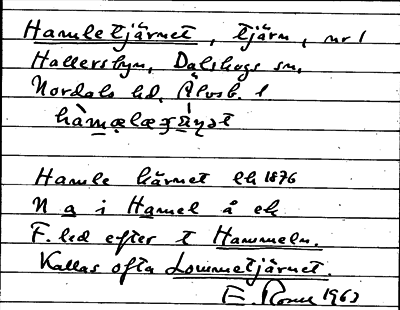 Hamletjärnet, tjärn, nr 1
Hallersbyn, Dalskogs sn,
Nordals hd, Älvsb. l
Hamle kärnet ek 1876
N a i Hamel å ek
F. led efter t Hammeln.
Kallas ofta Lommetjärnet.
E. 1963